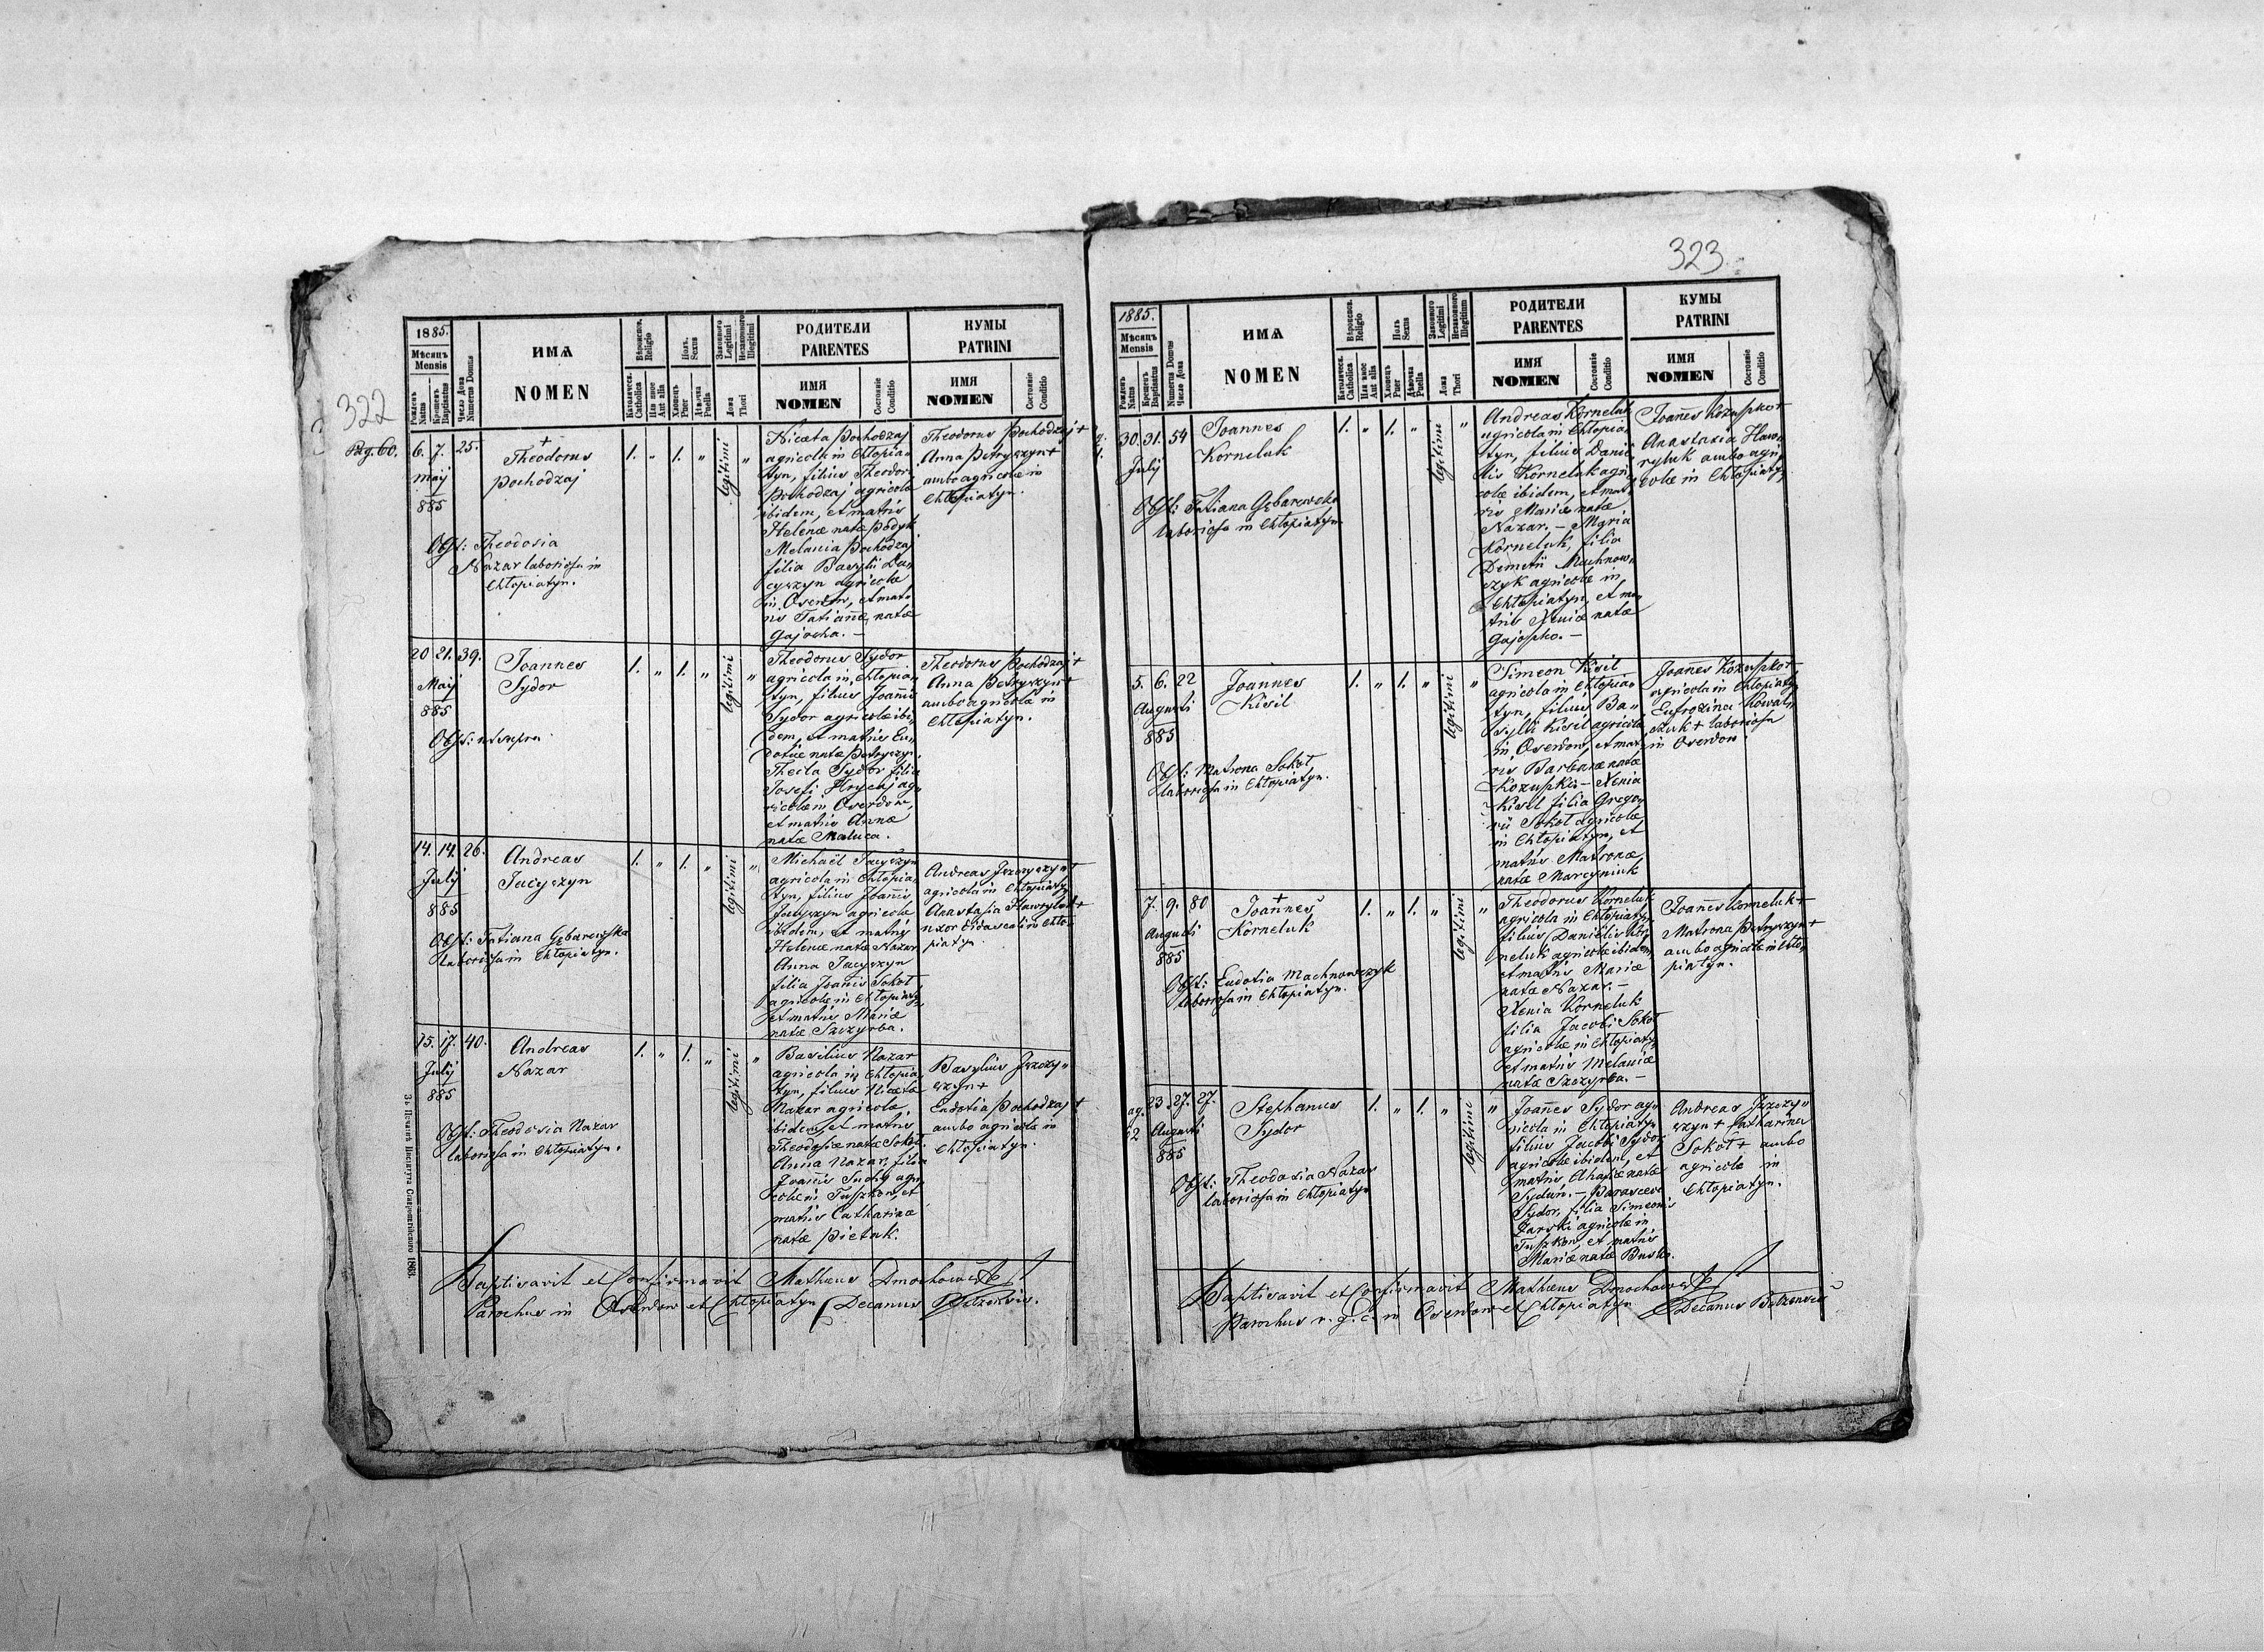 322
Pag. 60.
1885.
Мѣсяцъ
Mensis
Рожденъ
Natus
Крещенъ
Baptisatus
Число Дома
Numerus Domus
ИМЯ
NOMEN
Вѣроиспов.
Religio
Католическ.
Catholica
Или иное
Aut alia
Полъ.
Sexus
Хлопецъ
Puer
Дѣвочка
Puella
Законного
Legitimi
Незаконного
Illegitimi
Ложа
Thori
РОДИТЕЛИ
PARENTES
ИМЯ
NOMEN
Состояніе
Conditio
КУМЫ
PATRINI
ИМЯ
NOMEN
Состояніе
Conditio
6. 7. 25.
Maij
885
+
Theodorus
Pochodzaj
1. „ 1. „ legitimi „
Obst: Theodosia
Nazar laboriosa in
Chłopiatyn.
Niceta Pochodzaj
agricola in Chłopia-
tyn, filius Theodori
Pochodzaj agricolæ
ibidem, et matris
Helenæ natæ Podyk
Melania Pochodzaj
filia Basylii Da-
cyszyn agricolæ
in Oserdow, et mat-
ris Tatiannæ, natæ
Gajocha. —
Theodorus Pochodzaj +
Anna Petryszyn +
ambo agricolæ in
Chłopiatyn.
20 21. 39.
Maij
885
Joannes
Sydor
1. „ 1. „ legitimi „
Obst: ut supra.
Theodorus Sydor
agricola in Chłopia-
tyn, filius Joannis
Sydor agricolæ ibi-
dem, et matris Eu-
dotiæ natæ Petryszyn.
Thecla Sydor filia
Josefi Hrycaj ag-
ricolæ in Oserdow,
et matris Annæ
natæ Maluca.
Theodorus Pochodzaj +
Anna Petryszyn +
ambo agricolæ in
Chłopiatyn.
14. 14. 26.
Julij
885
Andreas
Jacyszyn
1. „ 1. „ legitimi „
Obst: Tatiana Gębarewska
laboriosa in Chłopiatyn.
Michael Jacyszyn
agricola in Chłopia-
tyn, filius Joannis
Jacyszyn agricolæ
ibidem, et matris
Helenæ natæ Nazar
Anna Jacyszyn
filia Joannis Sokoł
agricolæ in Chłopiatyn
et matris Mariæ
natæ Szczyrba.
Andreas Jszczyszyn +
agricola in Chłopiatyn
Anastasia Hawryluk +
uxor didascali in Chło-
piatyn.
15. 17. 40.
Julij
885
Andreas
Nazar
1. „ 1. „ legitimi „
Obst: Theodosia Nazar
laboriosa in Chłopiatyn.
Basilius Nazar
agricola in Chłopia-
tyn, filius Nicetæ
Nazar agricolæ
ibidem, et matris
Theodosiæ natæ Sokoł.
Anna Nazar, filia
Joannis Suchy agri-
colæ in Tuszkow, et
matris Catharinæ
natæ Pietuk.
Basylius Jszczy-
szyn +
Eudotia Pochodzaj +
ambo agricolæ in
Chłopiatyn.
Baptisavit et Confirmavit Matheus Dmochowski
Parochus in Oserdow et Chłopiatyn Decanus Bełzensis.
Зъ Печатнѣ Института Ставропигійского 1863.
323
1885.
Мѣсяцъ
Mensis
Рожденъ
Natus
Крещенъ
Baptisatus
Numerus Domus
Число Дома
ИМЯ
NOMEN
Вѣроиспов.
Religio
Католическ.
Catholica
Или иное
Aut alia
Полъ
Sexus
Хлопецъ
Puer
Дѣвочка
Puella
Законного
Legitimi
Незаконного
Illegitimum
Ложа
Thori
РОДИТЕЛИ
PARENTES
ИМЯ
NOMEN
Состояніе
Conditio
КУМЫ
PATRINI
ИМЯ
NOMEN
Состояніе
Conditio
30. 31. 54
Julij
Joannes
Korneluk
1. „ 1. „ legitimi „
Obst: Tatiana Gębarewska
laboriosa in Chłopiatyn
Andreas Korneluk
agricola in Chłopia-
tyn, filius Danie-
lis Korneluk agri-
colæ ibidem, et mat-
ris Mariæ natæ
Nazar. — Maria
Korneluk, filia
Demetrii Machnow-
szyk agricolæ in
Chłopiatyn, et ma-
tris Xeniæ natæ
Gajosko. —
Joannes Kozuszko +
Anastasia Haw-
ryluk ambo agri-
colæ in Chłopiatyn
5. 6. 22
Augusti
885
Joannes
Kisil
1. „ 1. „ legitimi „
Obst: Matrona Sokoł
laboriosa in Chłopiatyn.
Simeon Kisil
agricola in Chłopia-
tyn, filius Ba-
sylii Kisil agricolæ
in Oserdow, et mat-
ris Barbaræ natæ
Kozuszko — Xenia
Kisil filia Grego-
rii Sokoł agricolæ
in Chłopiatyn, et
matris Matronæ,
natæ Marcyniuk
Joanes Kozuszko +
agricola in Chłopiatyn
Eufrozina Kowal-
szuk + laboriosa
in Oserdow.
7. 9. 80
Augusti
885
+
Joannes
Korneluk
1. „ 1. „ legitimi „
Obst: Eudotia Machnowszyk
laboriosa in Chłopiatyn.
Theodorus Korneluk
agricola in Chłopiatyn
filius Danielis Kor-
neluk agricolæ ibidem
et matris Mariæ
natæ Nazar. —
Xenia Korneluk
filia Jacobi Sokoł
agricolæ in Chłopiatyn
et matris Melaniæ
natæ Szczyrba. —
Joannes Korneluk +
Matrona Petryszyn +
ambo agricolæ in Chło-
piatyn.
23. 27. 27.
Augusti
885
Stephanus
Sydor
1. „ 1. „ legitimi „
Obst: Theodosia Nazar
laboriosa in Chłopiatyn
Joannes Sydor ag-
ricola in Chłopiatyn
filius Jacobi Sydor
agricolæ ibidem, et
matris Ahafiæ natæ
Sydor. — Parasceva
Sydor, filia Simeonis
Zarski agricolæ in
Tuszkow, et matris
Mariæ natæ Busko.
Andreas Jszczy-
szyn + Katharina
Sokoł + ambo
agricolæ in
Chłopiatyn.
Baptisavit et Confirmavit Matheus Dmochowski
Parochus r. g. c. in Oserdow et Chłopiatyn Decanus Bełzensis